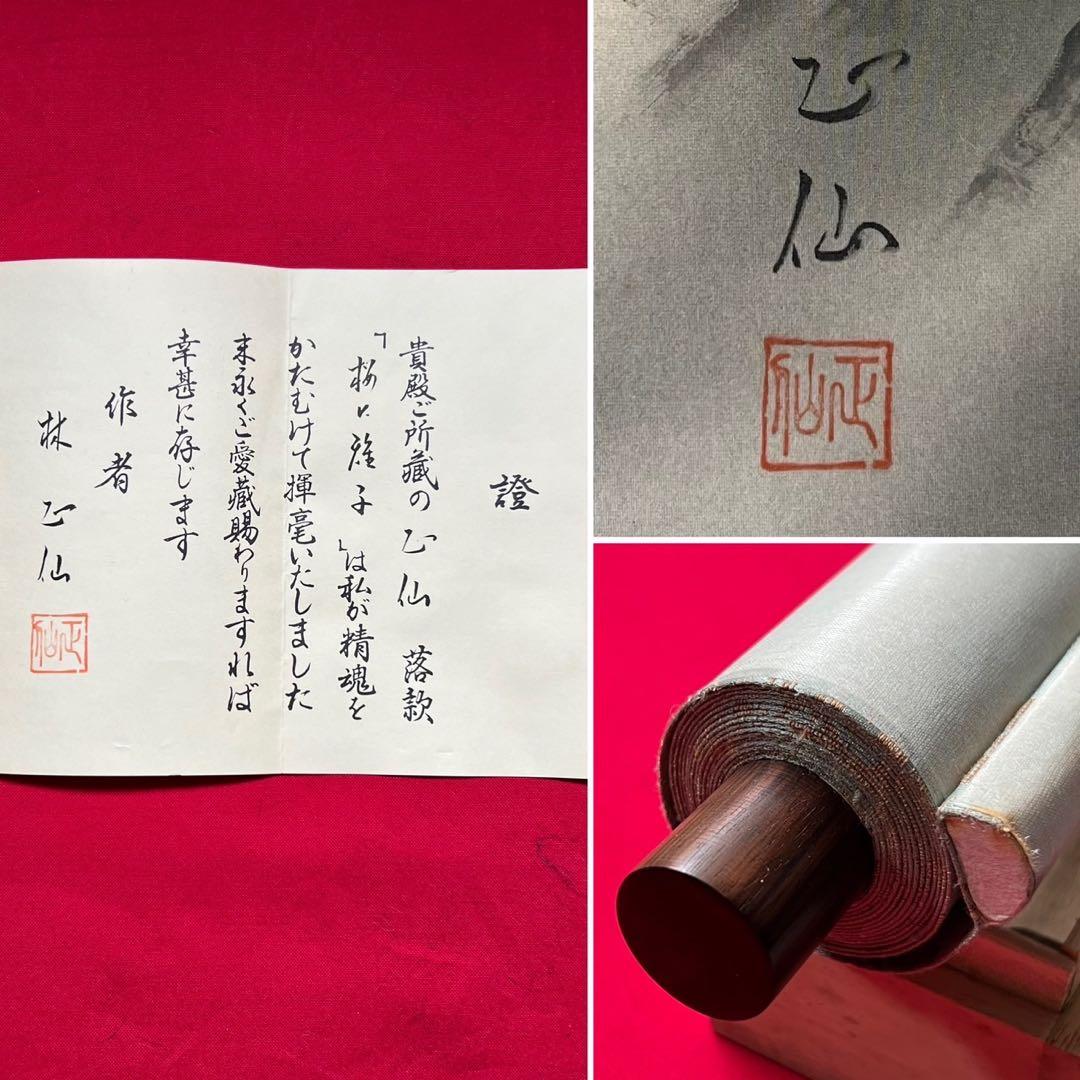 證
貴殿ご所藏の 正仙 落款
「桜に雉子」は私が精魂を
かたむけて揮毫いたしました
末永くご愛藏賜わりますれば
幸甚に存じます
作者
林 正仙
正仙
正仙
正仙